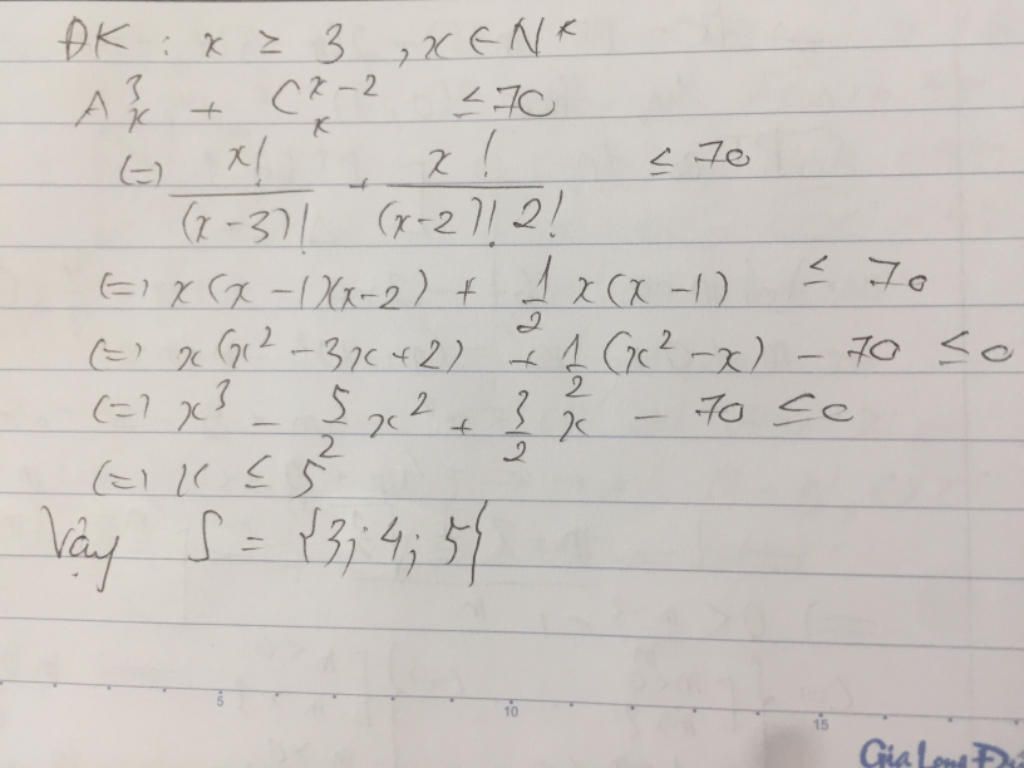 ĐK : x ≥ 3 , x ∈ N*
A³ₓ + Cₓˣ⁻² ≤ 70
(=) x!/(x-3)! + x!/((x-2)! 2!) ≤ 70
(=) x(x-1)(x-2) + 1/2 x(x-1) ≤ 70
(=) x(x² - 3x + 2) + 1/2 (x² - x) - 70 ≤ 0
(=) x³ - 5/2 x² + 3/2 x - 70 ≤ 0
(=) x ≤ 5
Vậy S = {3; 4; 5}
5 10 15
Gia Long